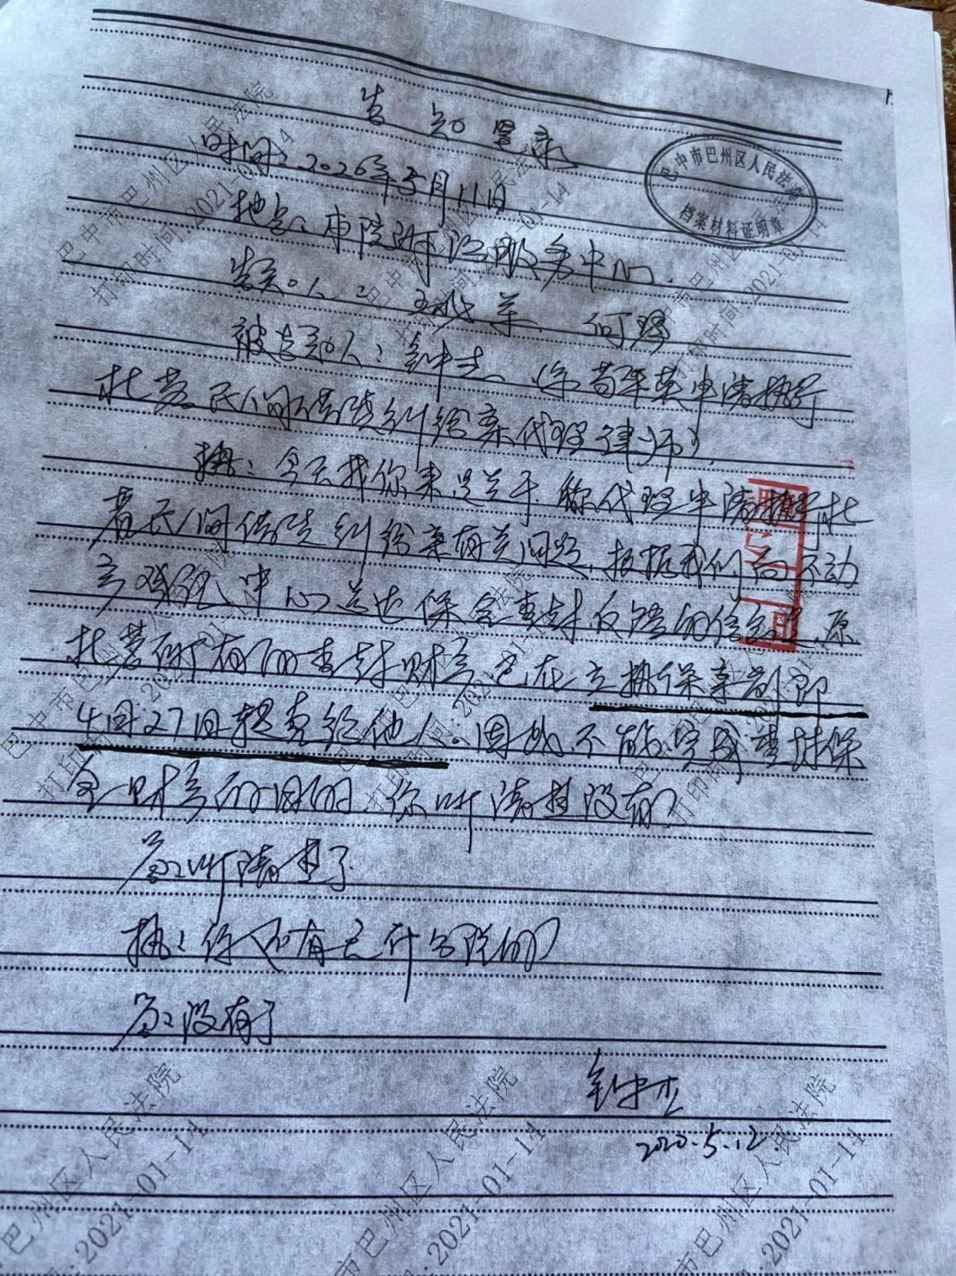 告知笔录
时间：2020年5月11日
地点：本院诉讼服务中心
告知人： 何琼
被告知人： （系苟年英申请执行
杜蓉民间借贷纠纷案代理律师）
执：今天找你来是关于你代理申请执行杜
蓉民间借贷纠纷案有关问题，根据我们向不动
产登记中心送达保全查封反馈的信息，原
杜蓉所有的查封财产已在立执保案前即
4月27日提查给他人。因此不能完成查封保
全财产的目的，你听清楚没有？
答：听清楚了
执：你还有无什么说的？
答：没有了
2020.5.12
巴中市巴州区人民法院
档案材料证明章
巴中市巴州区人民法院
打印时间：2021-01-14